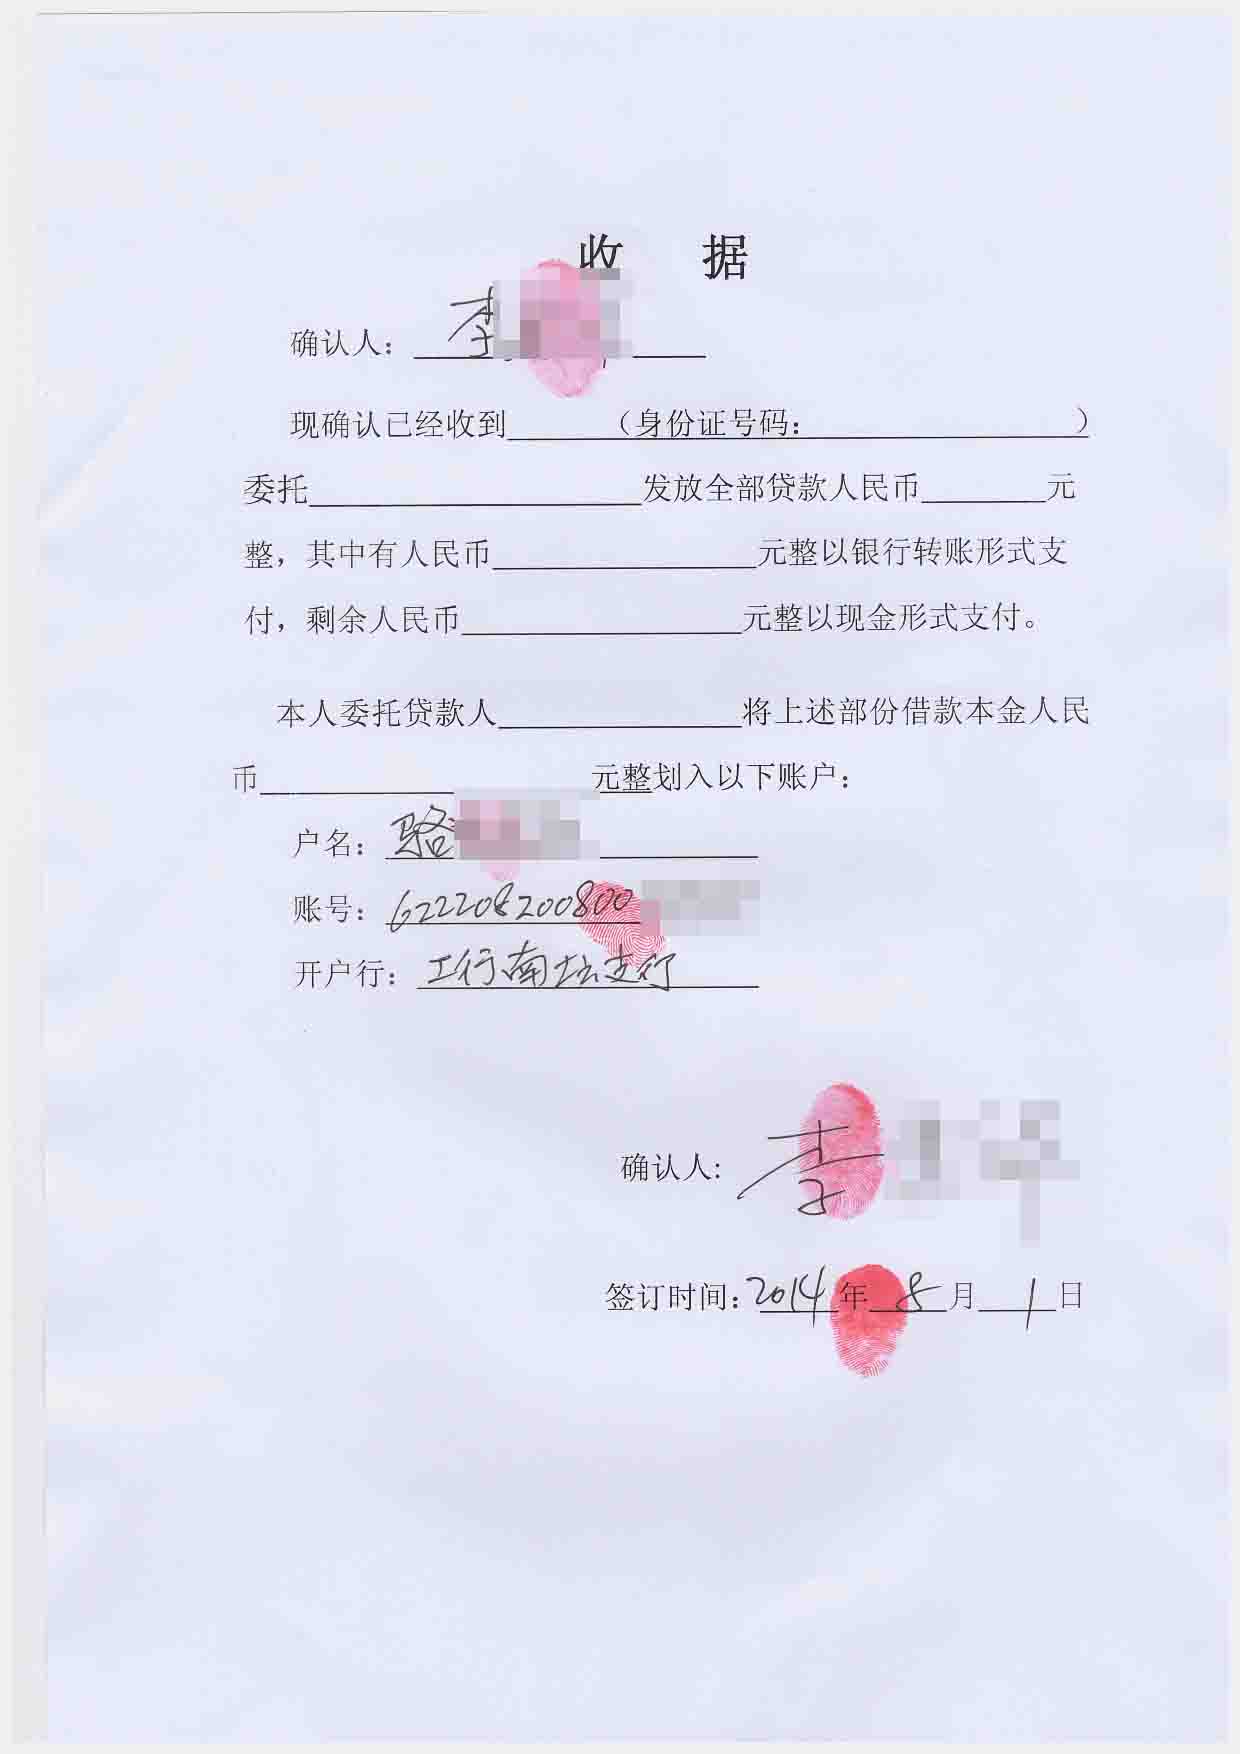 收 据
确认人：李
现确认已经收到______（身份证号码：______）
委托______发放全部贷款人民币______元
整，其中有人民币______元整以银行转账形式支
付，剩余人民币______元整以现金形式支付。
本人委托贷款人______将上述部份借款本金人民
币______元整划入以下账户：
户名：骆
账号：622208200800
开户行：工行南坛支行
确认人:李
签订时间：2014年8月1日